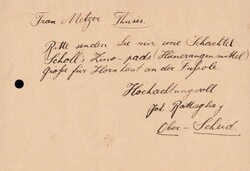 Frau Metzer Thusis.
Bitte senden Sie mir eine Schachtel
Scholl's Zino-pads (Hühneraugenmittel)
große für Hornhaut an der Fußsole
Hochachtungsvoll
Ober-Scheid.